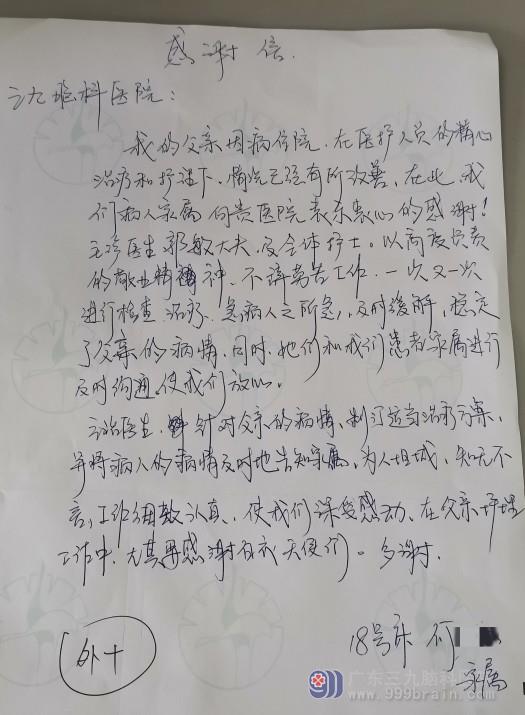 感谢信.
三九脑科医院：
我的父亲因病住院，在医疗人员的精心
治疗和护理下，情况已经有所改善，在此，我
们病人家属向贵医院表示衷心的感谢！
主诊医生郭敏大夫，及全体护士。以高度负责
的敬业精神，不辞劳苦工作，一次又一次
进行检查治疗、急病人之所急，及时缓解，稳定
了父亲的病情，同时，她们和我们患者家属进行
及时沟通，使我们放心。
主治医生，针对父亲的病情，制订适当治疗方案，
并将病人的病情及时地告知家属，为人坦城，知无不
言，工作细致认真、使我们深受感动、在父亲
工作中，尤其再感谢白衣天使们。多谢.
外十
18号床 何
家属
广东三九脑科医院
www.999brain.com